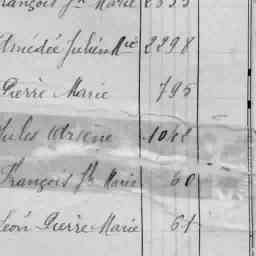 François Jh Marie 2533
Amédée Julien Mie 2298
Pierre Marie 795
Jules Arsène 1062
François Jh Marie 60
Léon Pierre Marie 61